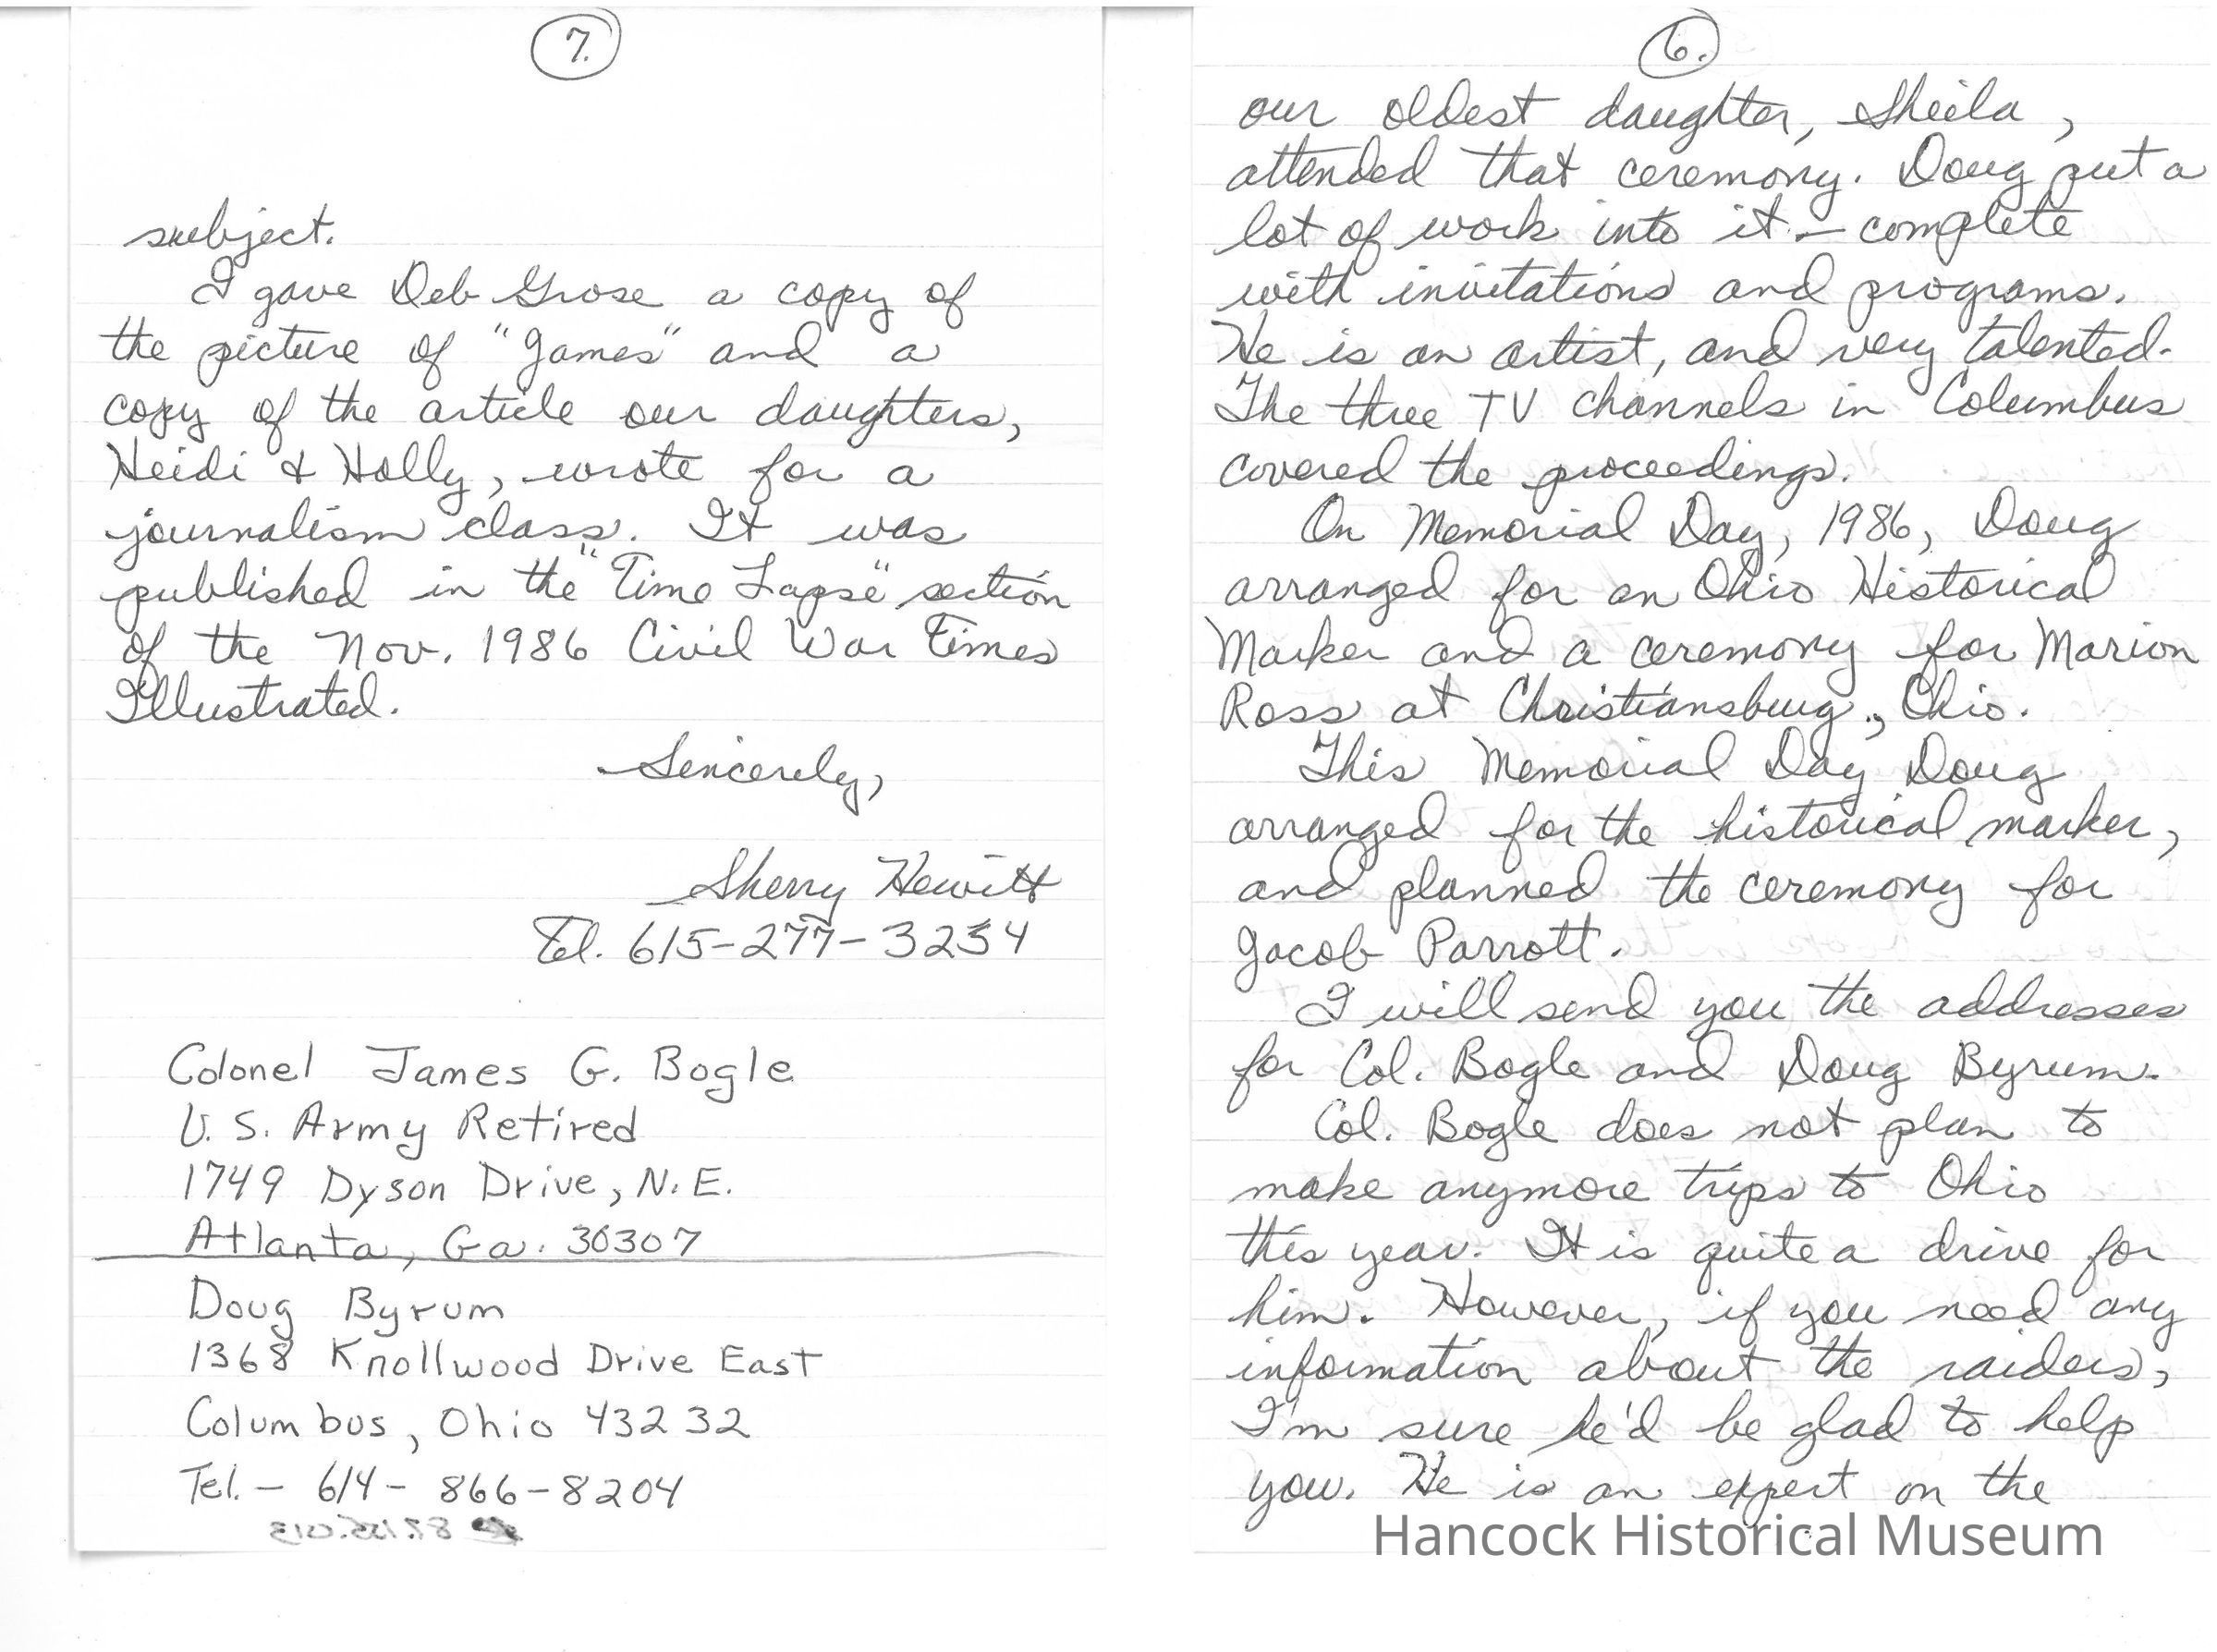 7.
subject.
I gave Deb Grose a copy of
the picture of "James" and a
copy of the article our daughters,
Heidi & Holly, wrote for a
journalism class. It was
published in the "Time Lapse" section
of the Nov. 1986 Civil War Times
Illustrated.
Sincerely,
Sherry Hewitt
Tel. 615-277-3254
Colonel James G. Bogle
U.S. Army Retired
1749 Dyson Drive, N.E.
Atlanta, Ga. 30307
Doug Byrum
1368 Knollwood Drive East
Columbus, Ohio 43232
Tel. - 614 - 866-8204
6.
our oldest daughter, Sheila,
attended that ceremony. Doug put a
lot of work into it - complete
with invitations and programs.
He is an artist, and very talented.
The three TV channels in Columbus
covered the proceedings.
On Memorial Day, 1986, Doug
arranged for an Ohio Historical
Marker and a ceremony for Marion
Ross at Christiansburg, Ohio.
This Memorial Day Doug
arranged for the historical marker,
and planned the ceremony for
Jacob Parrott.
I will send you the addresses
for Col. Bogle and Doug Byrum.
Col. Bogle does not plan to
make anymore trips to Ohio
this year. It is quite a drive for
him. However, if you need any
information about the raiders,
I'm sure he'd be glad to help
you. He is an expert on the
Hancock Historical Museum